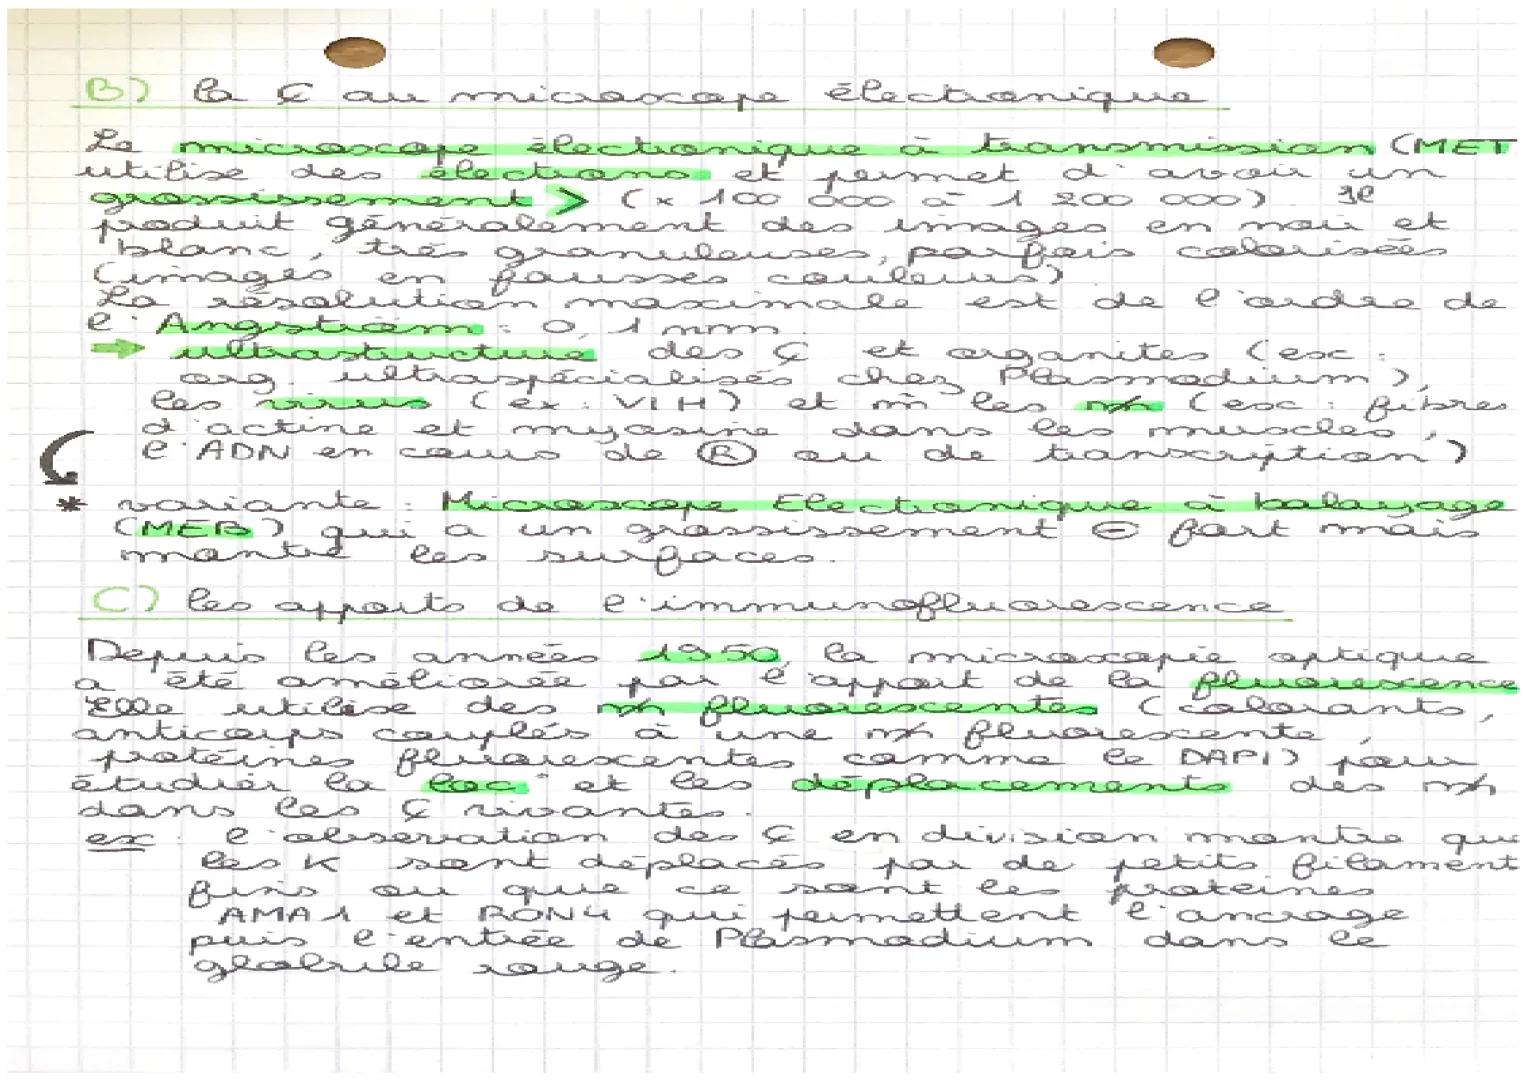 B) la ₵ au microscope électronique
Le microscope électronique à transmission (MET
utilise des électrons et permet d'avoir un
grossissement > (x 100 000 à 1 200 000). Il
produit généralement des images en noir et
blanc, très granuleuses, parfois colorisées
(images en fausses couleurs)
La résolution maximale est de l'ordre de
l'Angström : 0,1 nm.
⇒ ultrastructure des ₵ et organites (ex :
org. ultraspécialisés chez Plasmodium),
les virus (ex : VIH) et m̂ les (ex : fibres
d'actine et myosine dans les muscles,
l'ADN en cours de Ⓡ ou de transcription)
* variante : Microscope Electronique à balayage
(MEB) qui a un grossissement ⊖ fort mais
montre les surfaces.
C) les apports de l'immunofluorescence
Depuis les années 1950, la microscopie optique
a été améliorée par l'apport de la fluorescence
Elle utilise des fluorescentes (colorants,
anticorps couplés à une fluorescente,
protéines fluorescentes comme le DAPI) pour
étudier la loc° et les déplacements des
dans les ₵ vivantes.
ex : l'observation des ₵ en division montre que
les K sont déplacés par de petits filament
fins ou que ce sont les protéines
AMA1 et RON4 qui permettent l'ancrage
puis l'entrée de Plasmodium dans le
globule rouge.